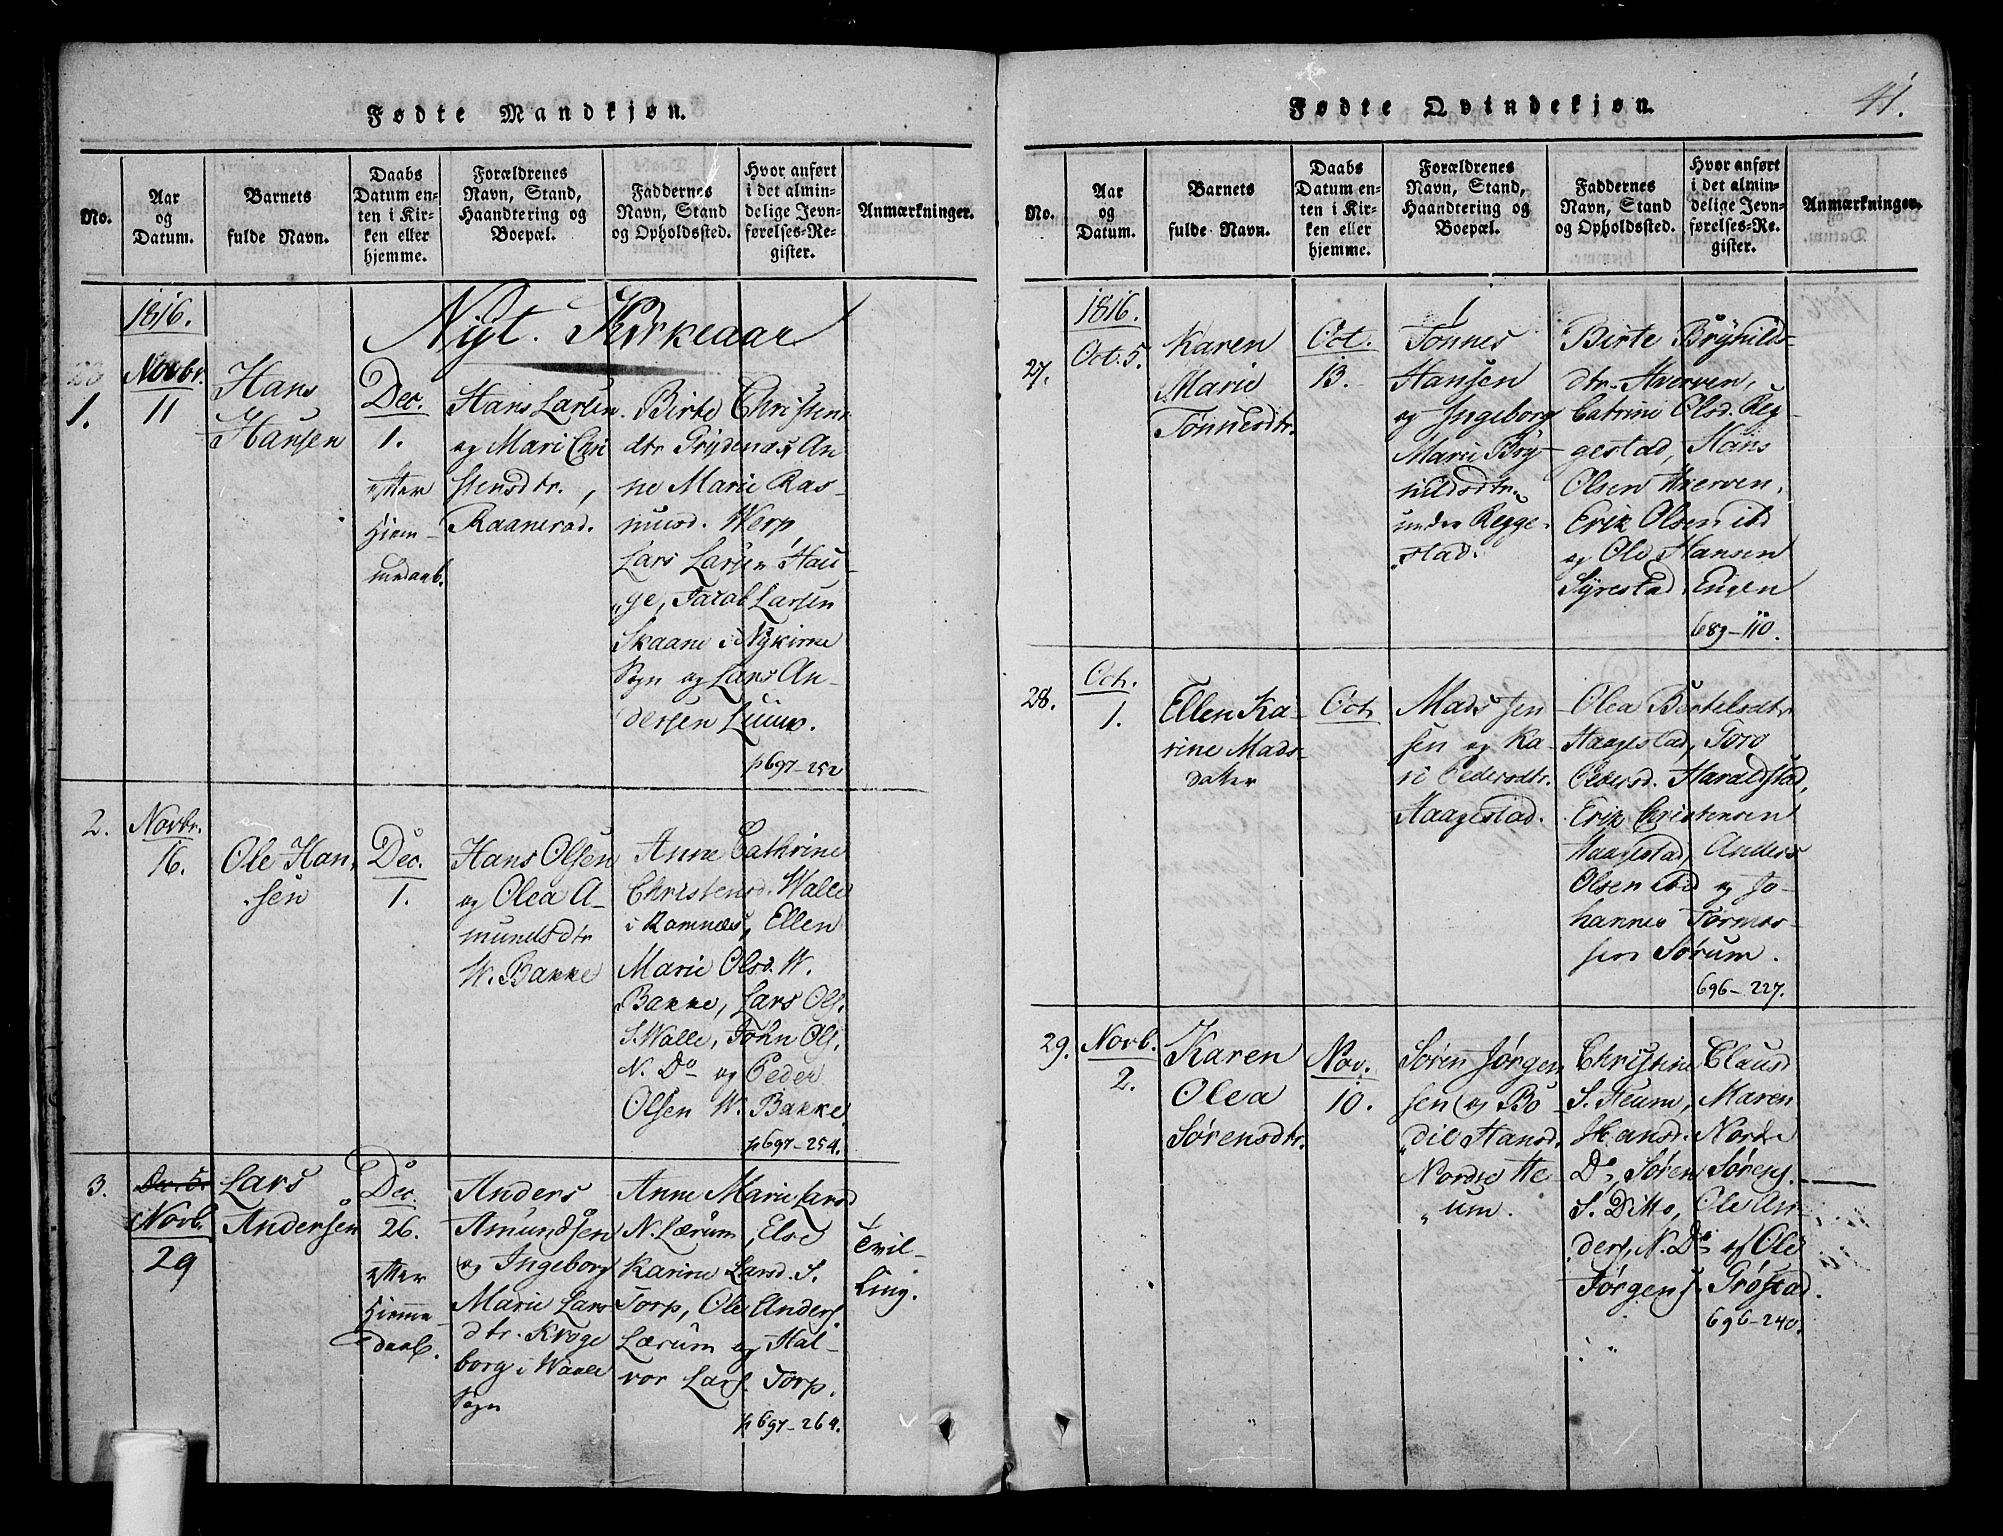 Fødte Mandkjøn.
No.
Aar
og
Datum.
Barnets
fulde Navn.
Daabs
Datum en-
ten i Kir-
ken eller
hjemme.
Forældrenes
Navn, Stand,
Haandtering og
Boepæl.
Faddernes
Navn, Stand
og Opholdssted.
Hvor anført
i det almin-
delige Jevn-
førelses-Re-
gister.
Anmærkninger.
1816.
Nyt. Kirkeaar
1.
Novbr.
11
Hans
Hansen
Dec.
1.
efter
Hiem-
medaab.
Hans Larsen
og Mari Chri
stensdtr.,
Raanerød.
Birte Christens
dtr Prydenas An
ne Marie Ras-
musd. Werp
Lars Larsen Hau-
ge, Jacob Larsen
Skaane i Nykirke
Sogn og Lars An-
dersen
p697-252
2.
Novbr.
16.
Ole Han-
sen
Dec.
1.
Hans Olsen
og Olea A-
mundsdtr
W. Bakke
Anne Cathrine
Christensd. Walle
i Ramnæs, Ellen
Marie Olsd. W.
Bakke, Lars Ols.
S. Walle, John Ols.
N. Do og Peder
Olsen W. Bakke
p697-254.
3.
Dec. 5.
Novb.
29
Lars
Andersen
Dec.
26.
efter
Hiemme
daab.
Anders
Amundsen
og Ingeborg
Marie Lars
dtr. Kroge
borg i Waale
Sogn
Anne Marie Larsd
N. Lærum, Else
Karine Larsd. S.
Torp, Ole Anders.
Lærum og Hal-
vor Lars. Torp.
p697-264.
Tvil-
ling.
Fødte Qvindekjøn.
41.
No.
Aar
og
Datum.
Barnets
fulde Navn.
Daabs
Datum en-
ten i Kir-
ken eller
hjemme.
Forældrenes
Navn, Stand,
Haandtering og
Boepæl.
Faddernes
Navn, Stand
og Opholdssted.
Hvor anført
i det almin-
delige Jevn-
førelses-Re-
gister.
Anmærkninger.
1816.
27.
Oct. 5.
Karen
Marie
Tønnesdtr.
Oct.
13.
Tønnes
Hansen
og Ingeborg
Marie Bry-
nildsdtr.
under Regge-
stad.
Birte Brynilds
dtr. Hverven,
Catrine Olsd. Reg-
gestad, Hans
Olsen Hverven,
Erik Olsen ibd
og Ole Hansen
Syrestad Eigen
689-110.
28.
Oct.
1.
Ellen Ka-
rine Mads-
datter
Oct
Mads Jen
sen og Ka-
ri Pedersdtr.
Haagestad.
Olea Bertelsdtr
Haagestad, Toro
Pedersd. Haraldstad,
Erik Christensen
Haagestad, Anders
Olsen ibd og Jo-
hannes Tormos-
sen Sørum.
696-227.
29.
Novb.
2.
Karen
Olea
Sørensdtr.
Nov.
10.
Søren Jørgen
sen og Bo-
dil Hansd.
Nordre He-
um.
Christine Clausd
S. Heum, Maren
Hansd. Nordre
Do, Søren Sørens.
S. Ditto, Ole An-
ders. N. Do og Ole
Jørgens. Grøstad.
696-240.